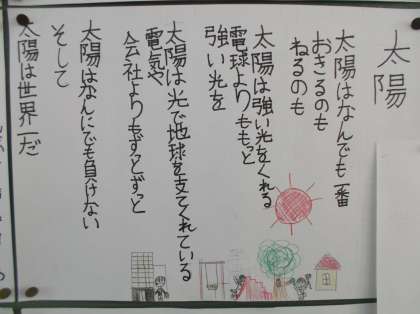 太陽
太陽はなんでも一番
おきるのも
ねるのも
太陽は強い光をくれる
電球よりももっと
強い光を
太陽は光で地球を支てくれている
電気や
会社よりもずっとずっと
太陽はなんにでも負けない
そして
太陽は世界一だ